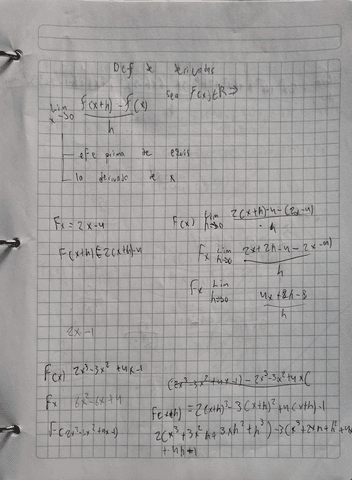 Def de derivadas
Sea F(x) ∈ R ⇒
Lim x→0 f(x+h) - f(x) / h
efe prima de equis
la derivada de x
Fx = 2x-4
F(x) Lim h→0 2(x+h)-4-(2x-4) / h
F(x+h) = 2(x+h)-4
Fx Lim h→0 2x+2h-4-2x-4) / h
Fx Lim h→0 4x+2h-8 / h
2x-1
F(x) 2x³-3x²+4x-1
(2x³-3x²+4x-1) - 2x³-3x²+4x(
Fx 6x²-6x+4
F(x+h) = 2(x+h)³-3(x+h)²+4(x+h)-1
F=(2x³-3x²+4x-1)
2(x³+3x²h+3xh²+h³)-3(x²+2xh+h²+4x
+4h-1